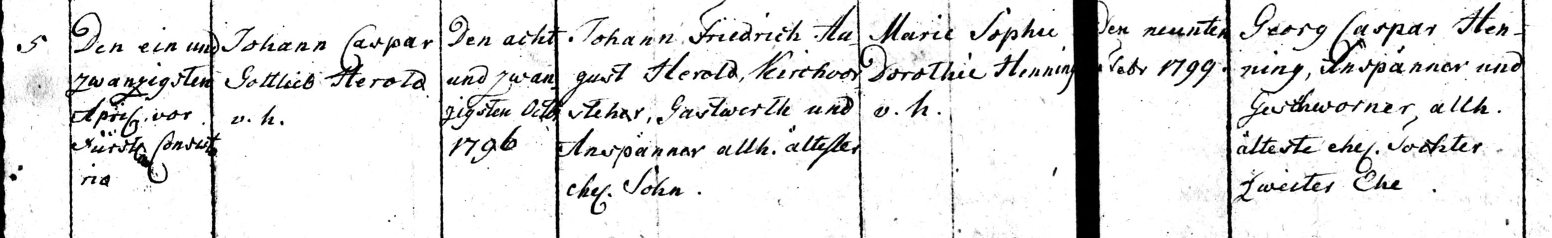 5
Den ein und
zwanzigsten
April. vor
Fürstl. Consisto
rio
Johann Caspar
Gottlieb Herold
v. h.
Den acht
und zwan
zigsten Octb.
1796
Johann Friedrich Au-
gust Herold, Kirchvor
steher, Gastwirth und
Anspänner allh. ältester
ehel. Sohn.
Marie Sophie
Dorothie Henning
v. h.
Den neunten
Febr 1799.
Georg Caspar Hen-
ning, Anspänner und
Geschworner, allh.
älteste ehel. Tochter
zweiter Ehe.